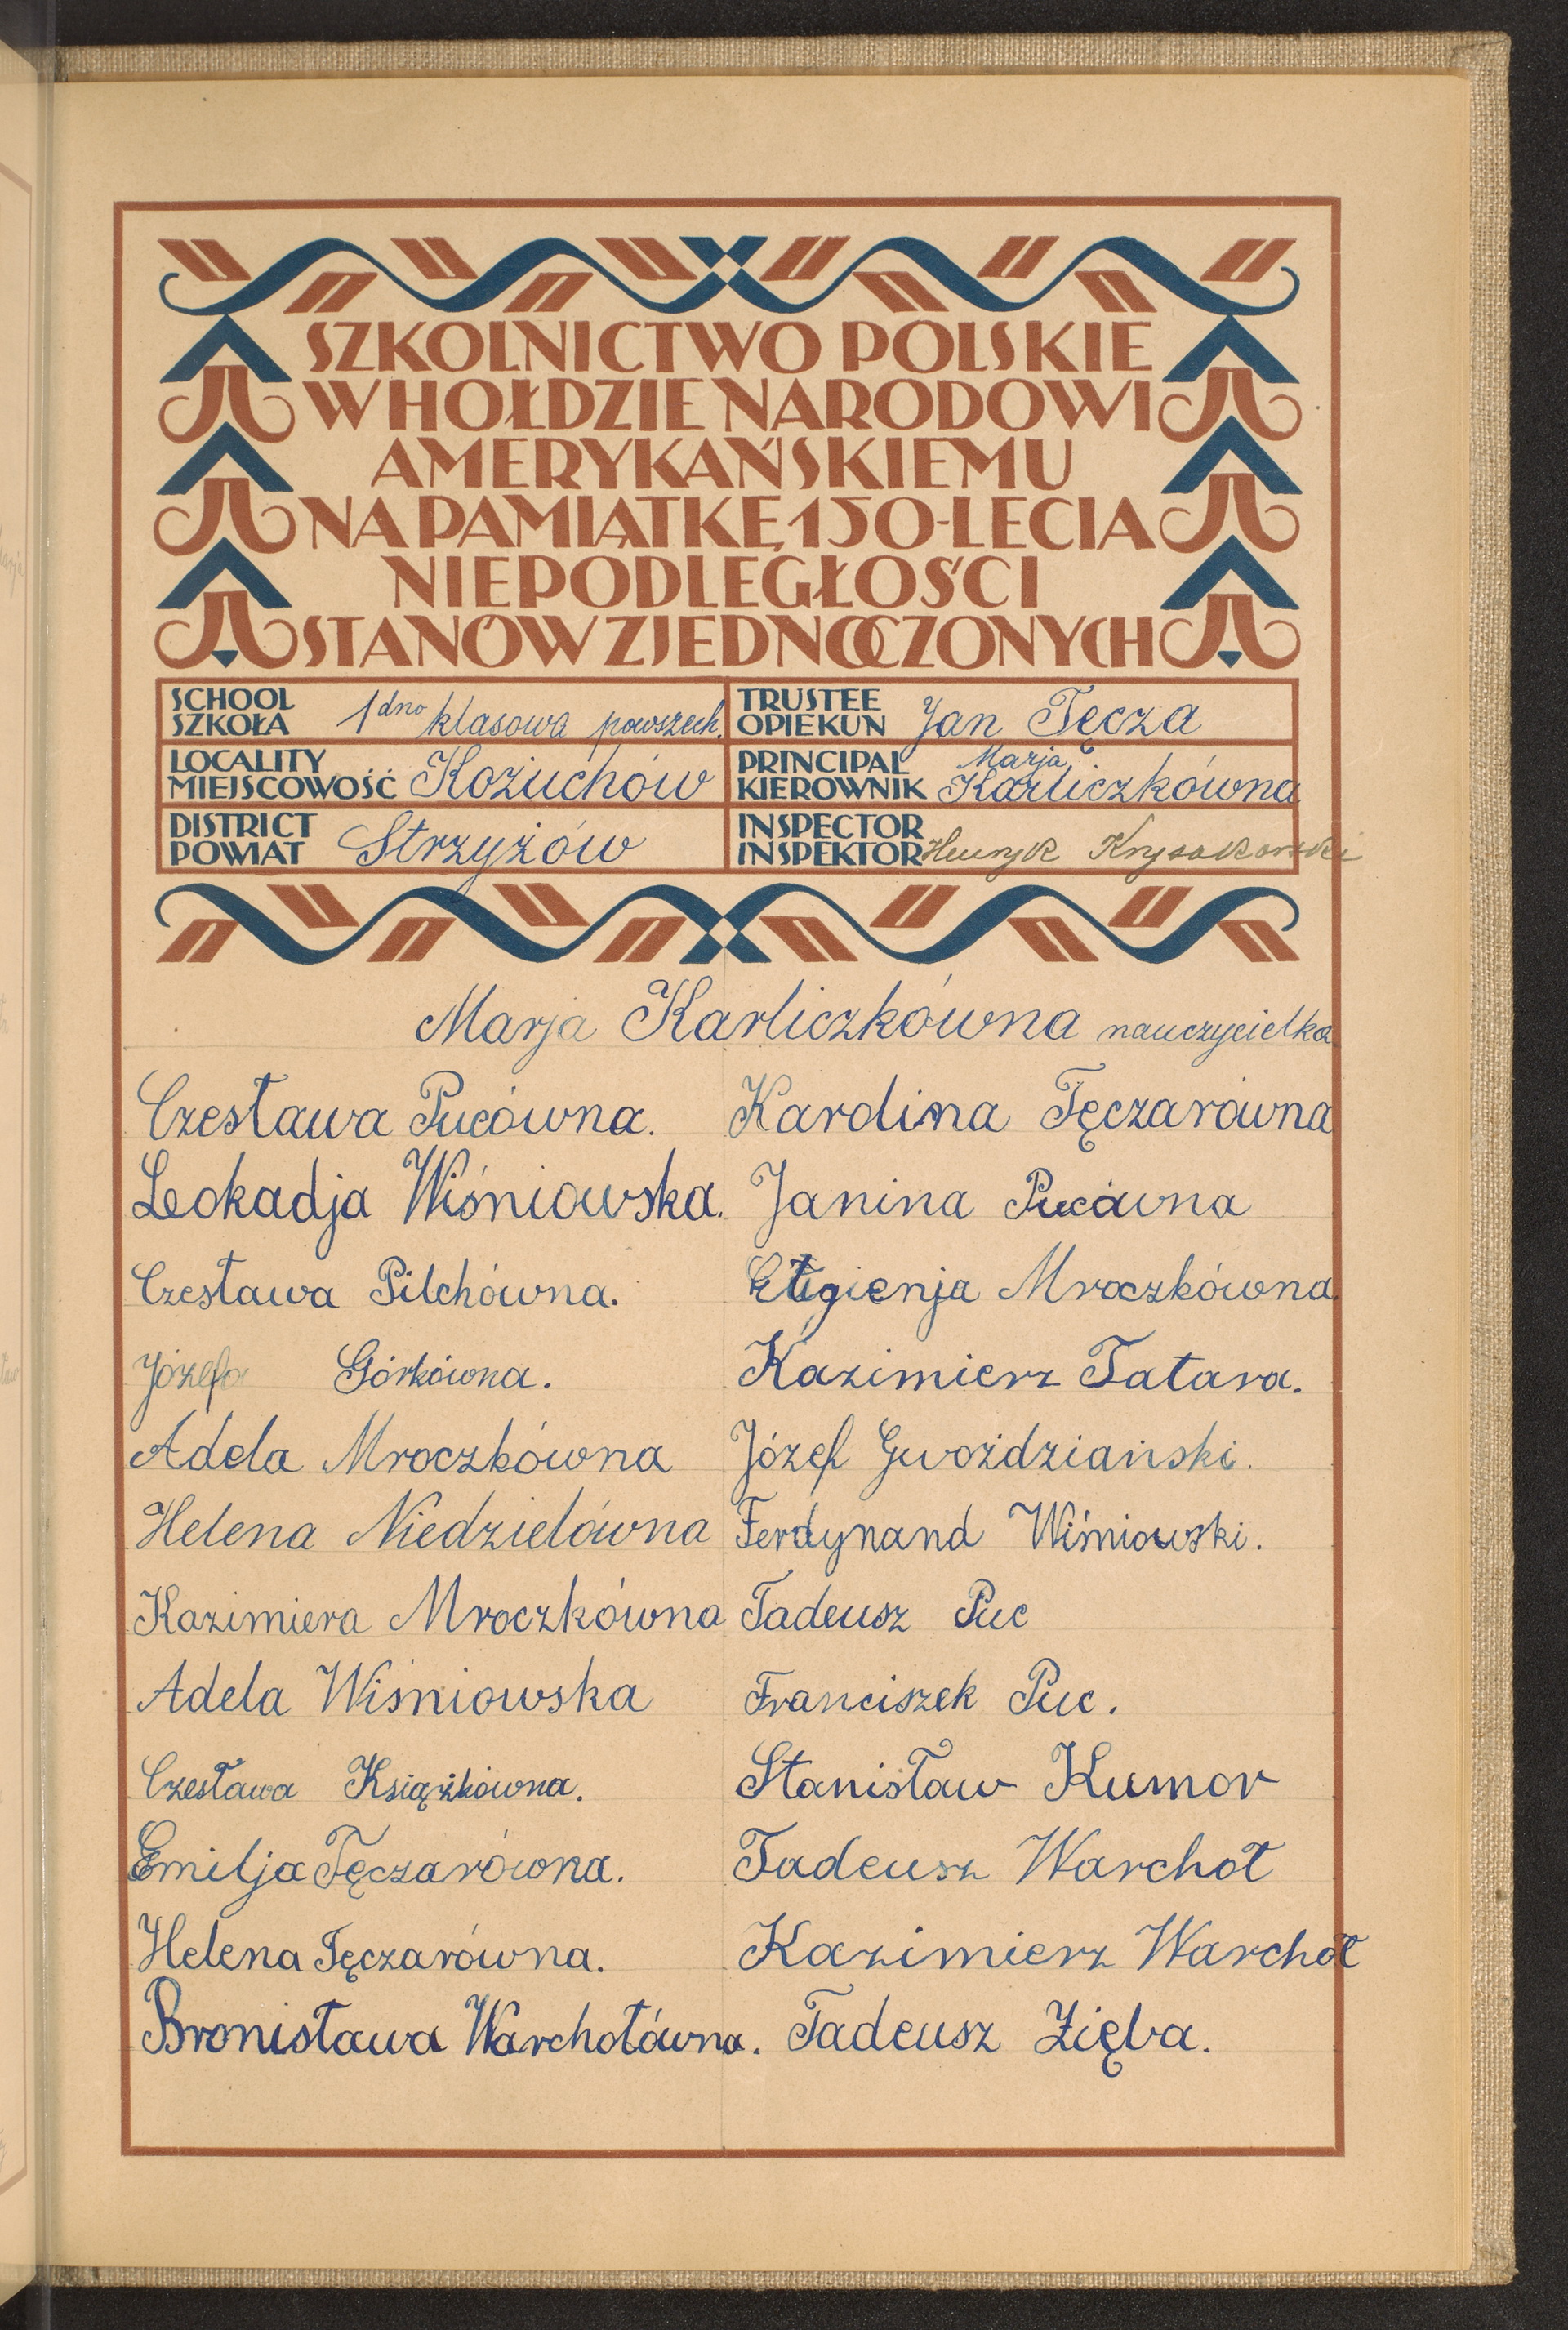 SZKOLNICTWO POLSKIE
W HOŁDZIE NARODOWI
AMERYKAŃSKIEMU
NA PAMIĄTKĘ 150-LECIA
NIEPODLEGŁOŚCI
STANÓW ZJEDNOCZONYCH
SCHOOL
SZKOŁA 1dno klasowa powszech.
TRUSTEE
OPIEKUN Jan Tęcza
LOCALITY
MIEJSCOWOŚĆ Kożuchów
PRINCIPAL Marja
KIEROWNIK Karliczkówna
DISTRICT
POWIAT Strzyżów
INSPECTOR
INSPEKTOR Henryk
Marja Karliczkówna nauczycielka
Czesława Pucówna. Karolina Tęczarówna
Leokadja Wiśniowska. Janina Pucówna
Czesława Pilchówna. Eugienja Mroczkówna.
Józefa Górkówna. Kazimierz Tatara.
Adela Mroczkówna Józef Gwoździański.
Helena Niedzielówna Ferdynand Wiśniowski.
Kazimiera Mroczkówna Tadeusz Puc
Adela Wiśniowska Franciszek Puc.
Czesława Książkówna. Stanisław Kumor
Emilja Tęczarówna. Tadeusz Warchoł
Helena Tęczarówna. Kazimierz Warchoł
Bronisława Warchołówna. Tadeusz Zięba.